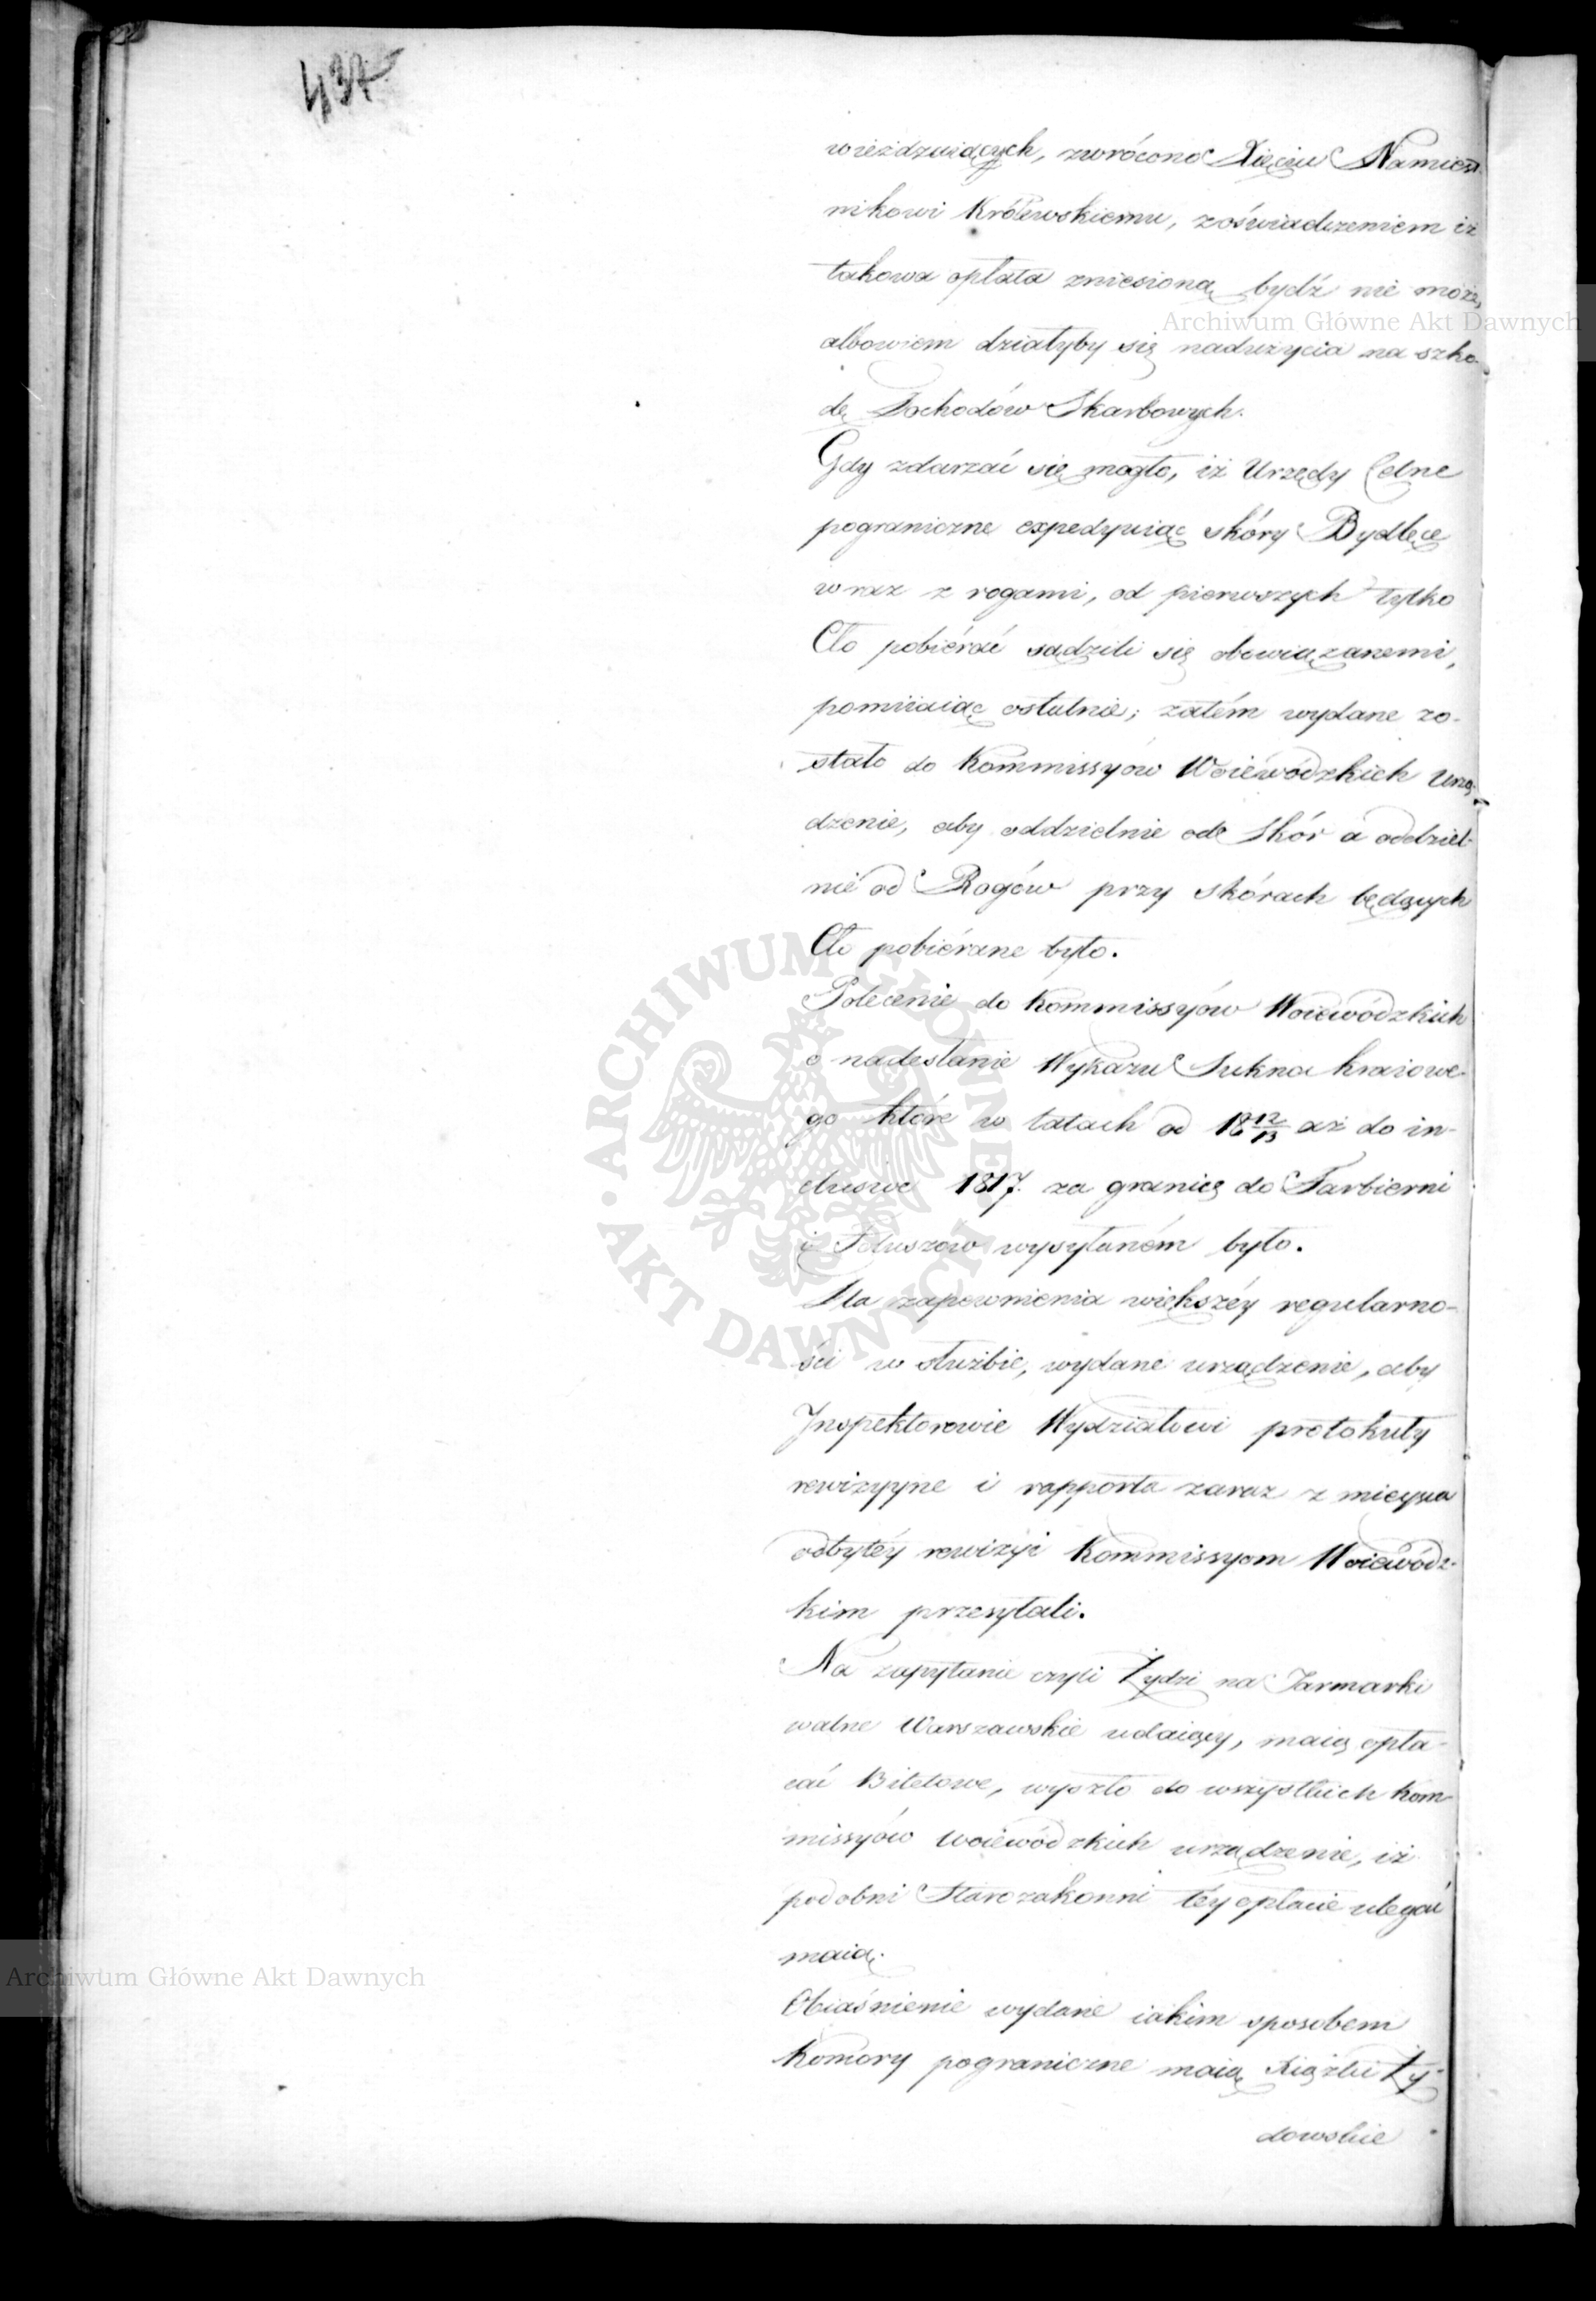 437
wieżdzaiących, zwrócono Xięciu Namiest-
nikowi Królewskiemu, z oświadczeniem iż
takowa opłata zniesioną bydź nie może,
albowiem działyby się nadużycia na szko-
dę Dochodów Skarbowych.
Gdy zdarzać się mogło, iż Urzędy Celne
pograniczne expedyuiąc skóry Bydlęce
wraz z rogami, od pierwszych tylko
Cło pobiérać sądzili się obowiązanemi,
pomiiaiąc ostatnie; zatém wydane zo-
stało do Kommissyów Woiéwódzkich Urzą-
dzenie, aby oddzielnie od Skór a oddziel-
nie od Rogów przy skórach będących
Cło pobiérane było.
Polecenie do Kommissyów Woiewódzkich
o nadesłanie Wykazu Sukna kraiowe-
go które w latach od 18 12/13 aż do in-
clusive 1817. za granicę do Farbierni
i Foluszów wysyłaném było.
Dla zapewnienia większéy regularno-
ści w służbie, wydane urządzenie, aby
Inspektorowie Wydziałowi protokuły
rewizyyne i rapporta zaraz z mieysca
odbytéy rewizyi Kommissyom Woiewódz-
kim przesyłali.
Na zapytanie czyli Żydzi na Jarmarki
walne Warszawskie udaiący, maią opła-
cać Biletowe, wyszło do wszystkich Kom-
missyów Woiewódzkich urządzenie, iż
podobni Starozakonni téy opłacie ulegać
maią.
Obiaśnienie wydane iakim sposobem
Komory pograniczne maią Xiążki Ży-
dowskie
Archiwum Główne Akt Dawnych
Archiwum Główne Akt Dawnych
ARCHIWUM GŁÓWNE AKT DAWNYCH